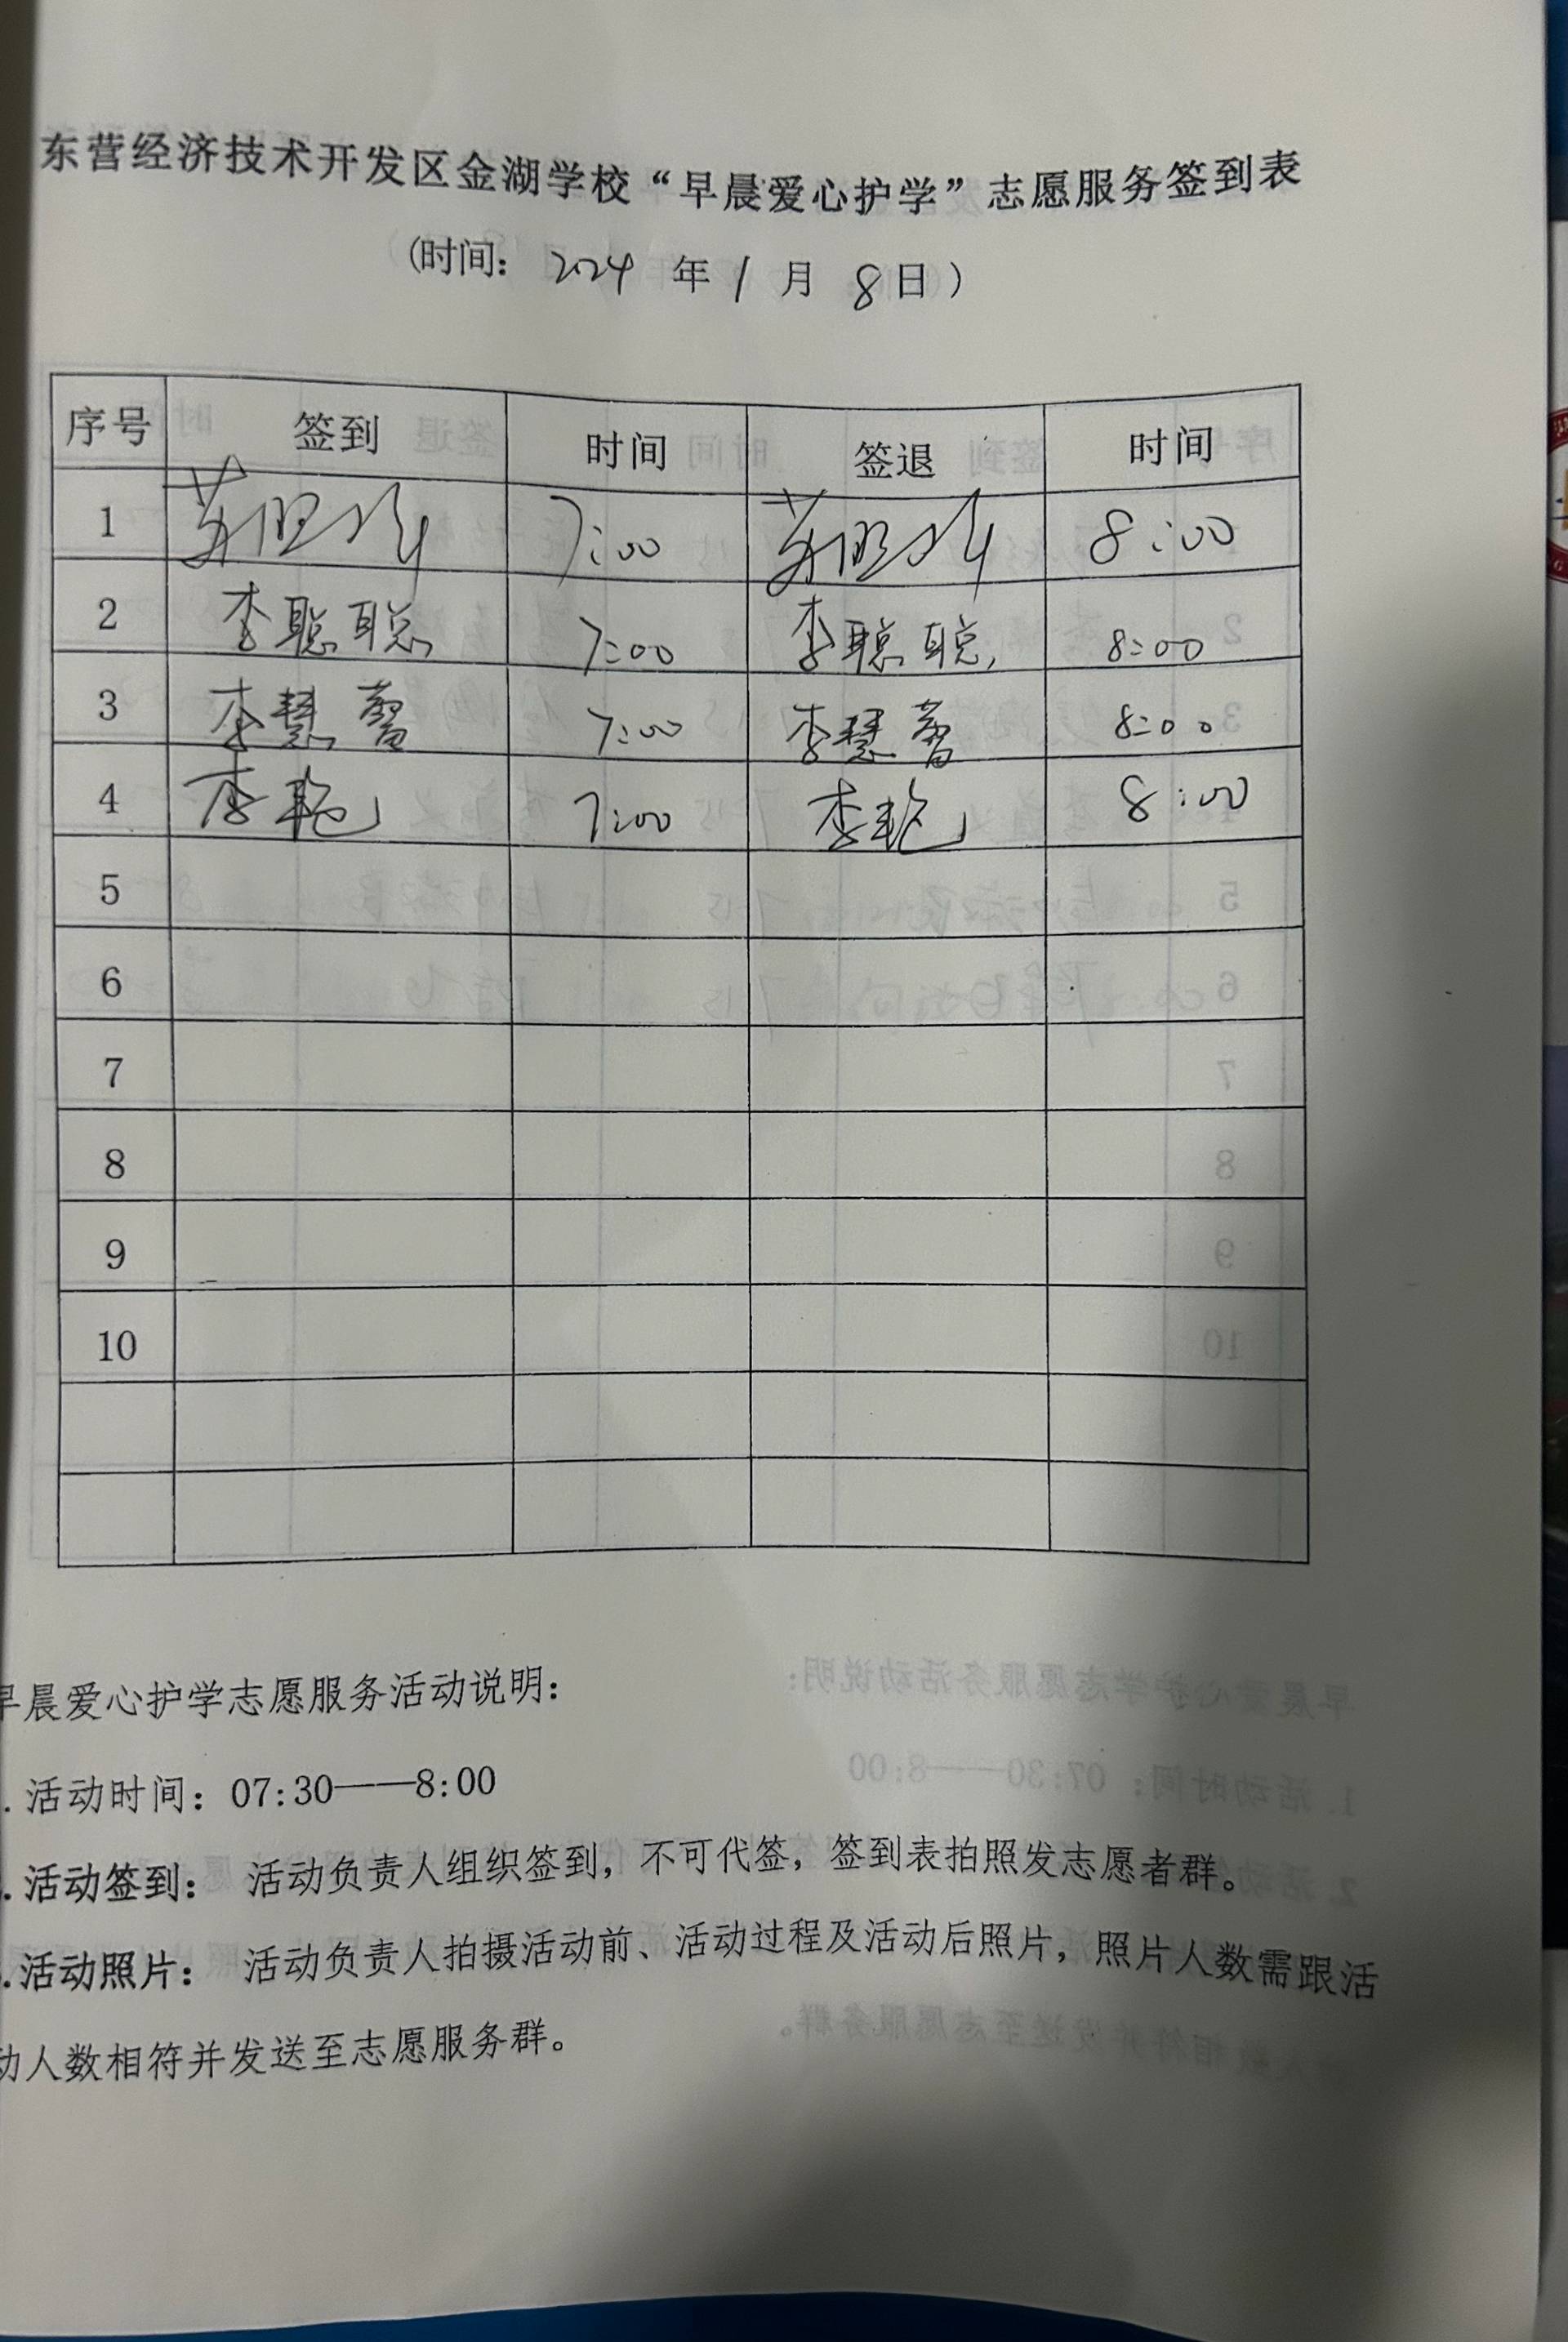 东营经济技术开发区金湖学校“早晨爱心护学”志愿服务签到表
(时间: 2024 年 1 月 8 日)
序号 签到 时间 签退 时间
1 7:00 8:00
2 李聪聪 7:00 李聪聪 8:00
3 李慧馨 7:00 李慧馨 8:00
4 李艳 7:00 李艳 8:00
5
6
7
8
9
10
早晨爱心护学志愿服务活动说明:
. 活动时间: 07:30——8:00
. 活动签到: 活动负责人组织签到, 不可代签, 签到表拍照发志愿者群。
. 活动照片: 活动负责人拍摄活动前、活动过程及活动后照片, 照片人数需跟活
动人数相符并发送至志愿服务群。